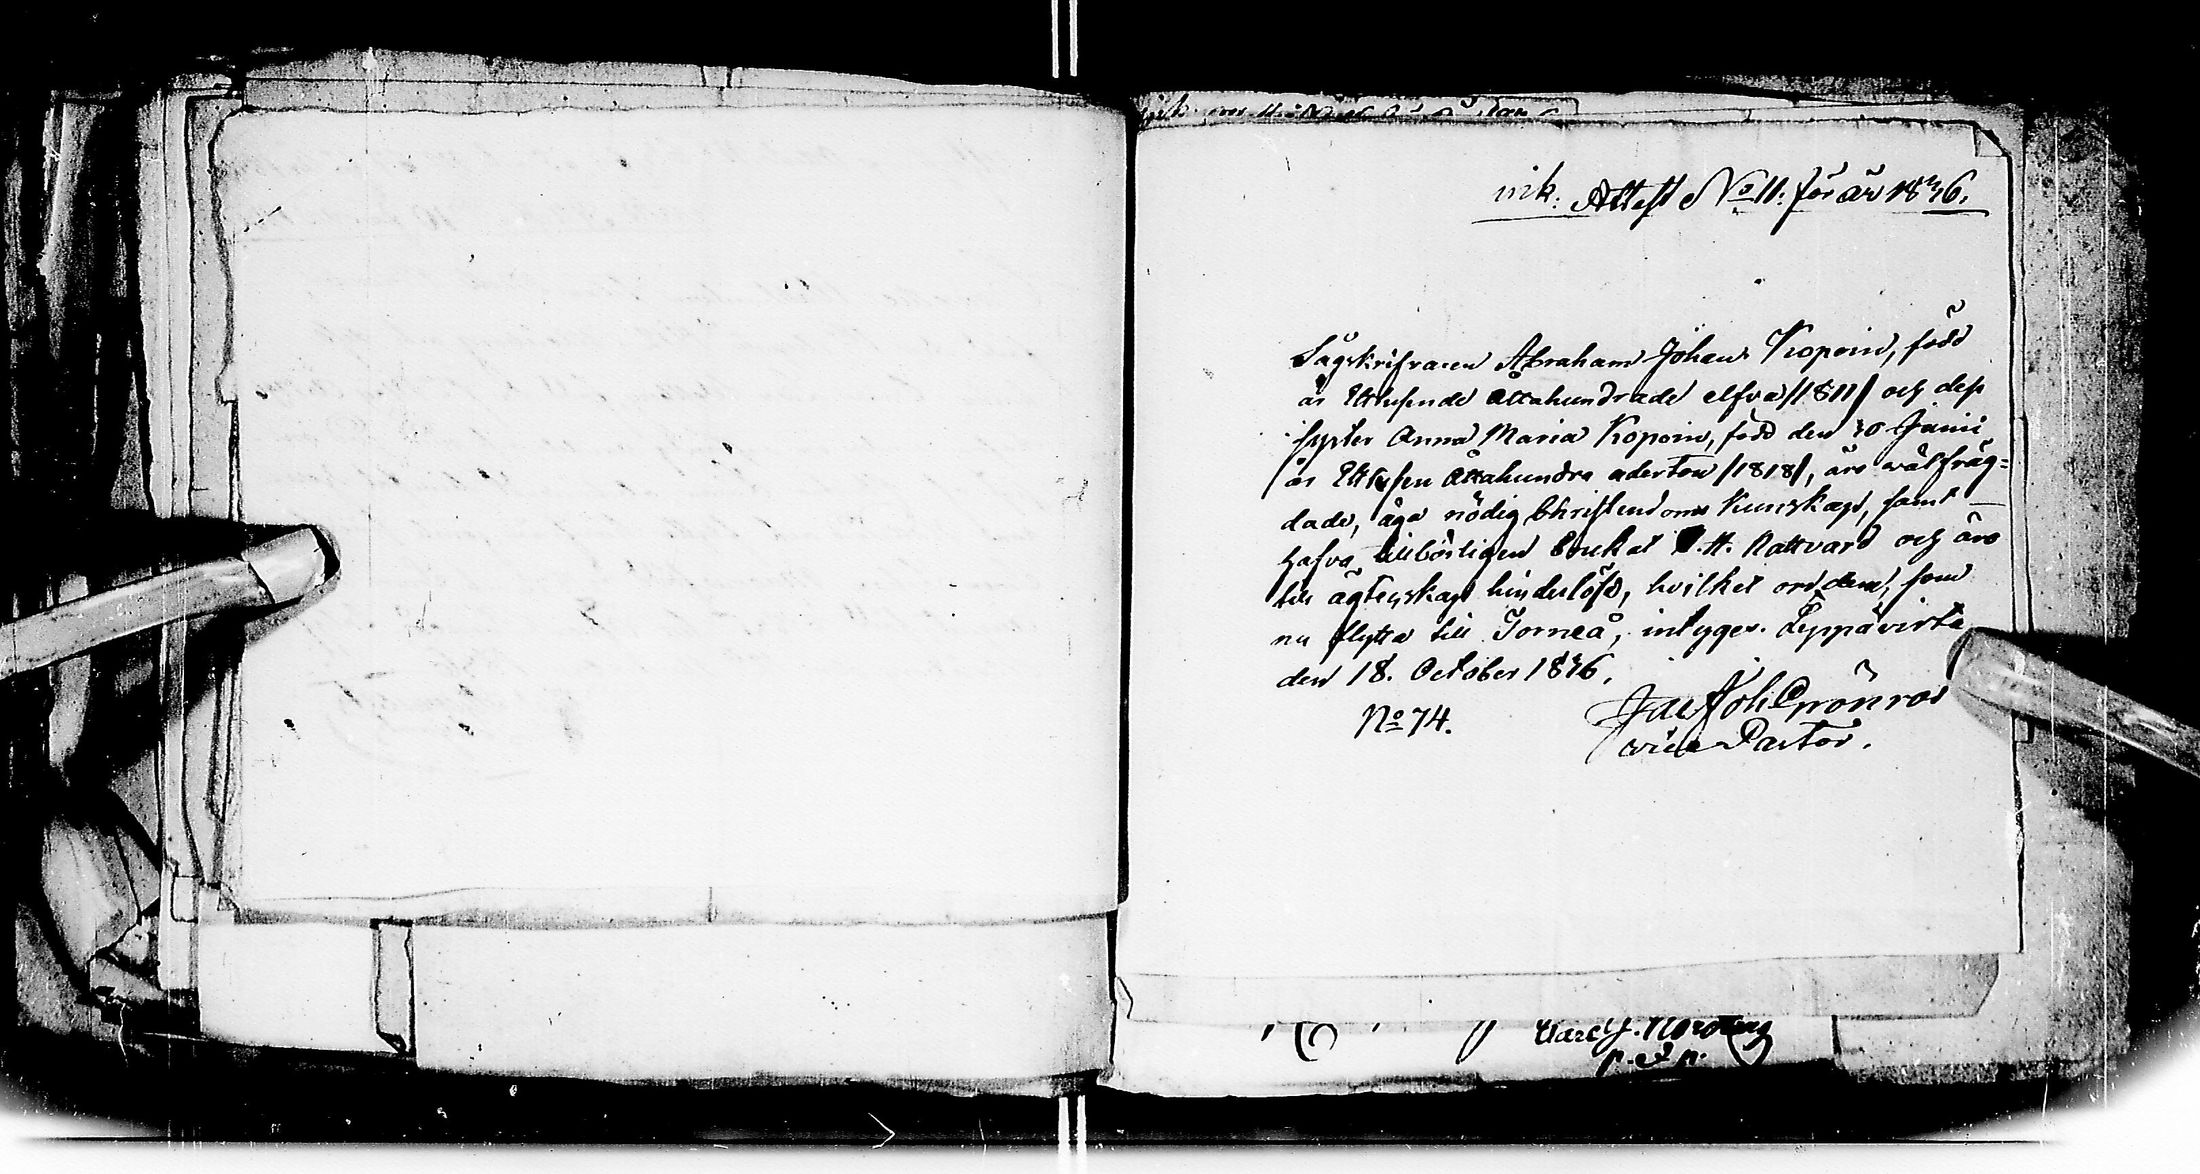 ink. Attest No 11. för år 1846.
Sågskrifvaren Abraham Johan Kopoin, född
år Ettusende Åttahundrade elfva /1811/ och dess
syster Anna Maria Kopoin, född den 30 Junii
år Ettusen Åttahundra aderton /1818/, äro välfräg=
dade, äga nödig Christendoms Kunskap, samt
hafva tillbörligen brukat H. H. Nattvard och äro
till ägtenskap hinderlösa, hvilket om dem, som
nu flytta till Torneå, intygas. Leppävirta
den 18. October 1846.
No 74.
Jac Joh Grönroos
vice Pastor.